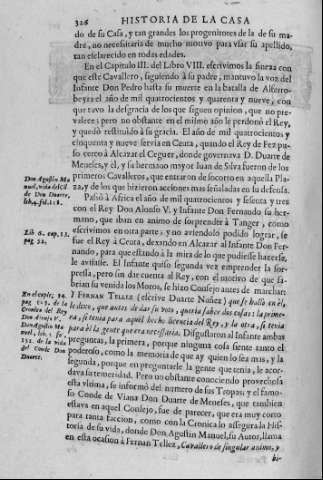 326 HISTORIA DE LA CASA
do de su Casa, y tan grandes los progenitores de la de su ma-
dre, no necesitaria de mucho motivo para vsar su apellido,
tan esclarecido en todas edades.
En el Capitulo III. del Libro VIII. escrivimos la fineza con
que este Cavallero, siguiendo à su padre, mantuvo la voz del
Infante Don Pedro hasta su muerte en la batalla de Alferro-
beyra el año de mil quatrocientos y quarenta y nueve, con
que tuvo la desgracia de los que siguen opinion, que no pre-
valece: pero no obstante en el mismo año le perdonò el Rey,
y quedò restituido à su gracia. El año de mil quatrocientos y
cinquenta y nueve servia en Ceuta, quando el Rey de Fez pu-
so cerco à Alcazar el Ceguer, donde governava D. Duarte de
Meneses, y el, y su hermano mayor Iuan de Silva fueron de los
primeros Cavalleros, que entraron de socorro en aquella Pla-
za, y de los que hizieron acciones mas señaladas en su defensa.
Passò à Africa el año de mil quatrocientos y sesenta y tres
con el Rey Don Alonso V. y Infante Don Fernando su her-
mano, que iban en animo de sorprender à Tanger, como
escrivimos en otra parte; y no aviendolo podido lograr, se
fue el Rey à Ceuta, dexando en Alcazar al Infante Don Fer-
nando, para que estando à la mira de lo que pudiesse hazerse,
le avisasse. El Infante quiso segunda vez emprender la sor-
presa, pero sin dar cuenta al Rey, con el motivo de que sa-
brian su venida los Moros, se hizo Consejo antes de marchar:
Y FERNAN TELLEZ (escrive Duarte Nuñez) que se hallò en èl,
le dixo, que antes de dar su voto, queria saber dos cosas: la prime-
ra, si tenia para aquel hecho licencia del Rey, y la otra, si tenia
para èl la gente que era necessaria. Disgustaron al Infante ambas
preguntas, la primera, porque ninguna cosa siente tanto el
poderoso, como la memoria de que ay quien lo sea mas, y la
segunda, porque en preguntarle la gente que tenia, le acor-
dava su temeridad. Pero no obstante conociendo provechosa
esta vltima, se informò del numero de sus Tropas: y el famo-
so Conde de Viana Don Duarte de Meneses, que tambien
estava en aquel Consejo, fue de parecer, que era muy corto
para tanta faccion, como con la Cronica lo assegura la His-
toria de su vida, donde Don Agustin Manuel, su Autor, llama
en esta ocasion à Fernan Tellez, Cavallero de singular animo, y
Don Agustin Ma
nuel, vida del Cõde
de Don Duarte,
lib. 4. fol. 118.
Lib. 6. cap. 13.
pag. 52.
En el capit. 30.
de la
Cronica del Rey
Don Alonso V.
Don Agustin Ma-
nuel, lib. 5. fol.
132. de la vida
del Conde Don
Duarte.